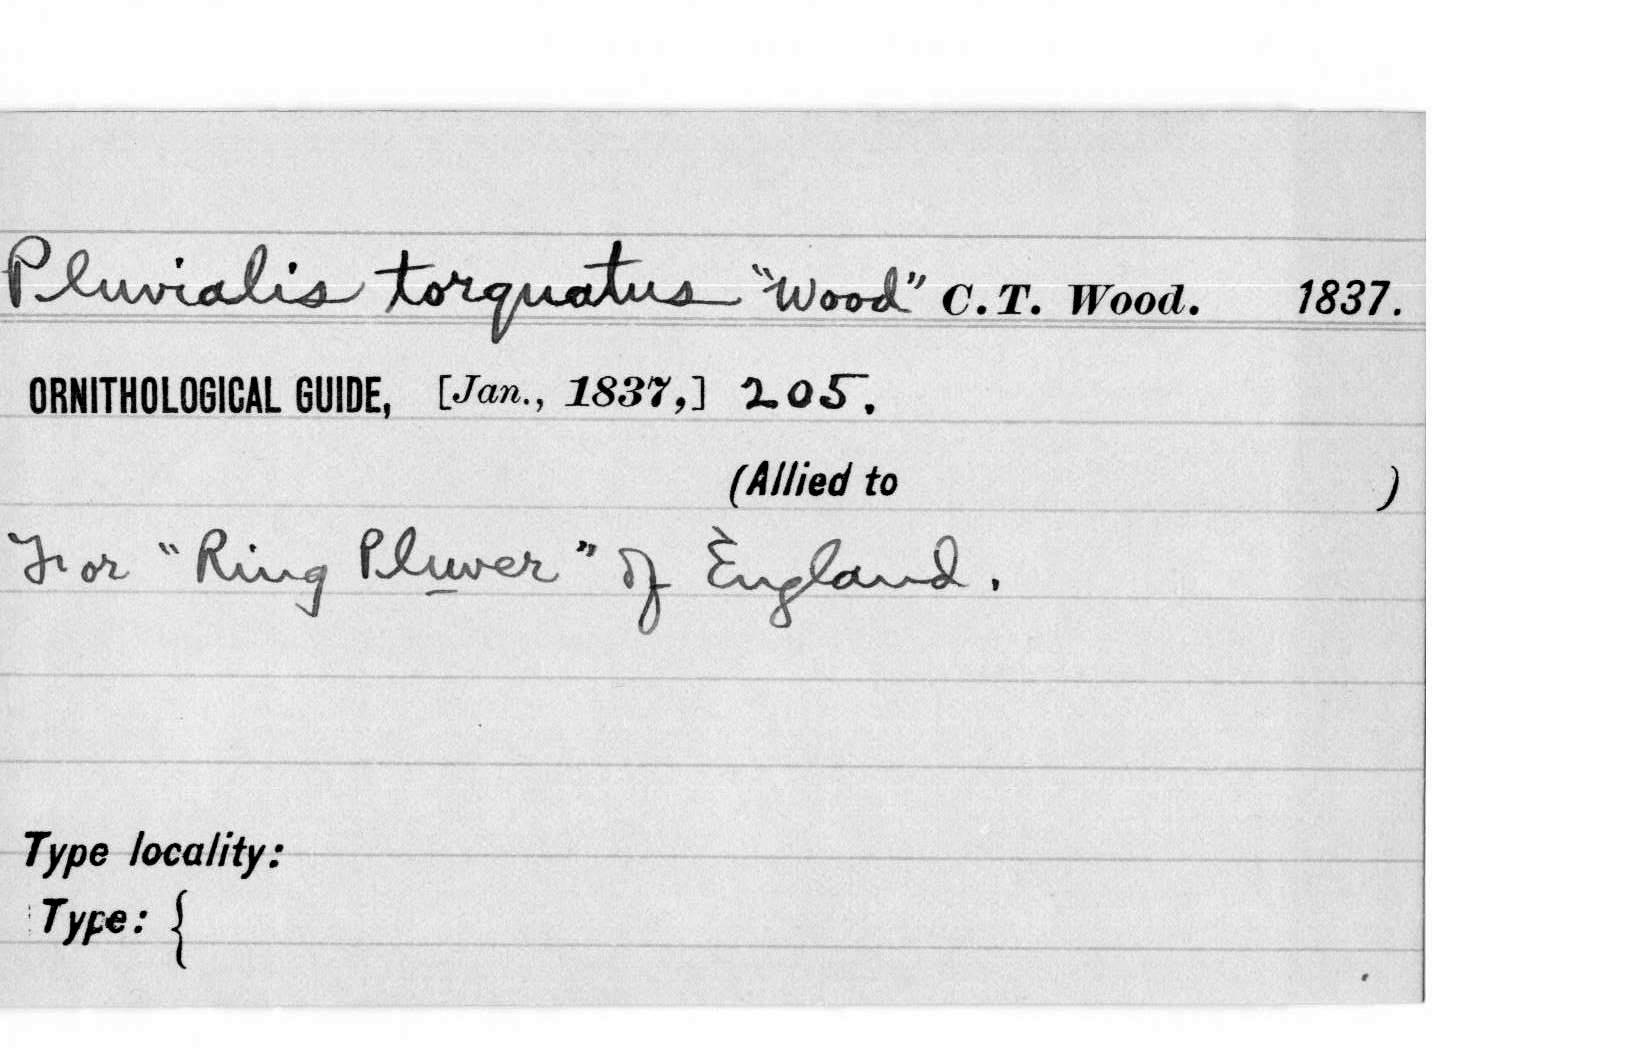 Pluvialis torquatus "Wood" C.T. Wood. 1837.
ORNITHOLOGICAL GUIDE, [Jan., 1837,] 205.
(Allied to )
For "Ring Pluver" of England.
Type locality:
Type: {